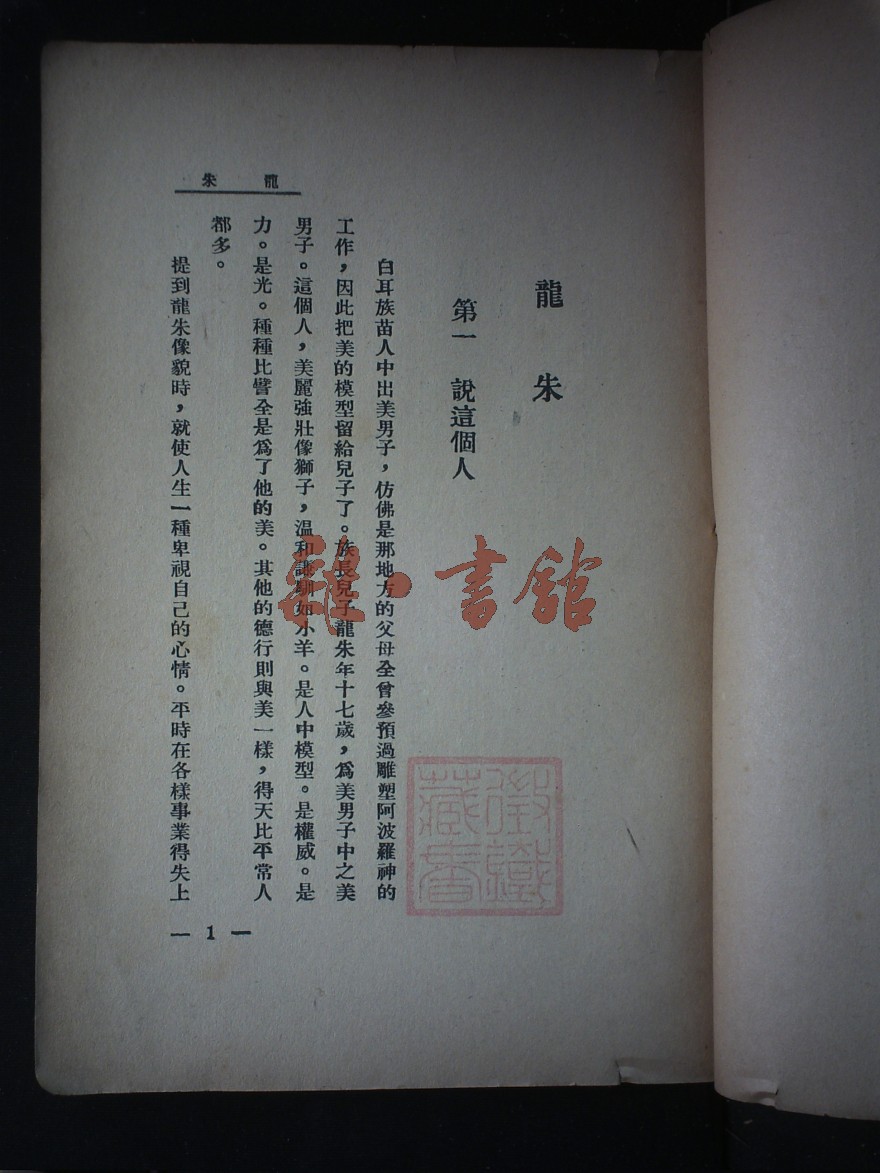 龍朱
第一　說這個人
白耳族苗人中出美男子，仿佛是那地方的父母全曾參預過雕塑阿波羅神的
工作，因此把美的模型留給兒子了。族長兒子龍朱年十七歲，爲美男子中之美
男子。這個人，美麗強壯像獅子，溫和謙馴如小羊。是人中模型。是權威。是
力。是光。種種比譬全是爲了他的美。其他的德行則與美一樣，得天比平常人
都多。
提到龍朱像貌時，就使人生一種卑視自己的心情。平時在各樣事業得失上
龍朱
— 1 —
書館